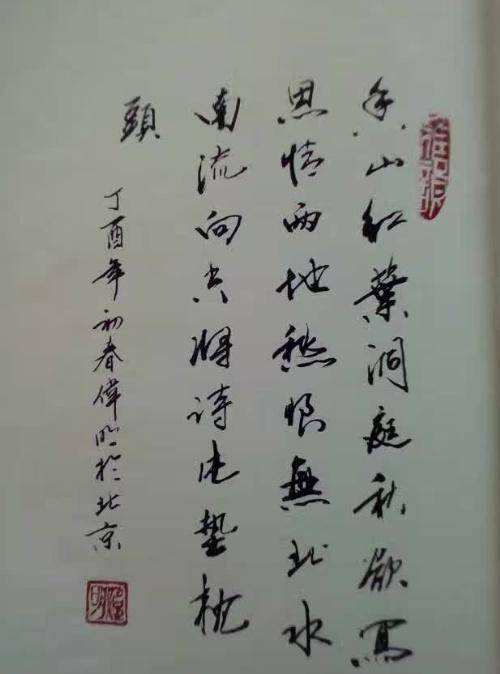 香山红葉洞庭秋欲寫
恩情兩地愁恨無北水
南流向將詩墊枕
頭
丁酉年初春偉明於北京